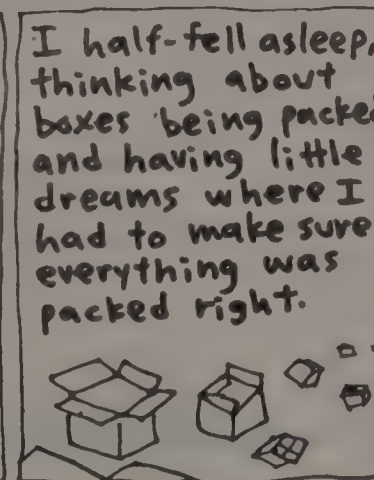 I half-fell asleep,
thinking about
boxes being packed
and having little
dreams where I
had to make sure
everything was
packed right.